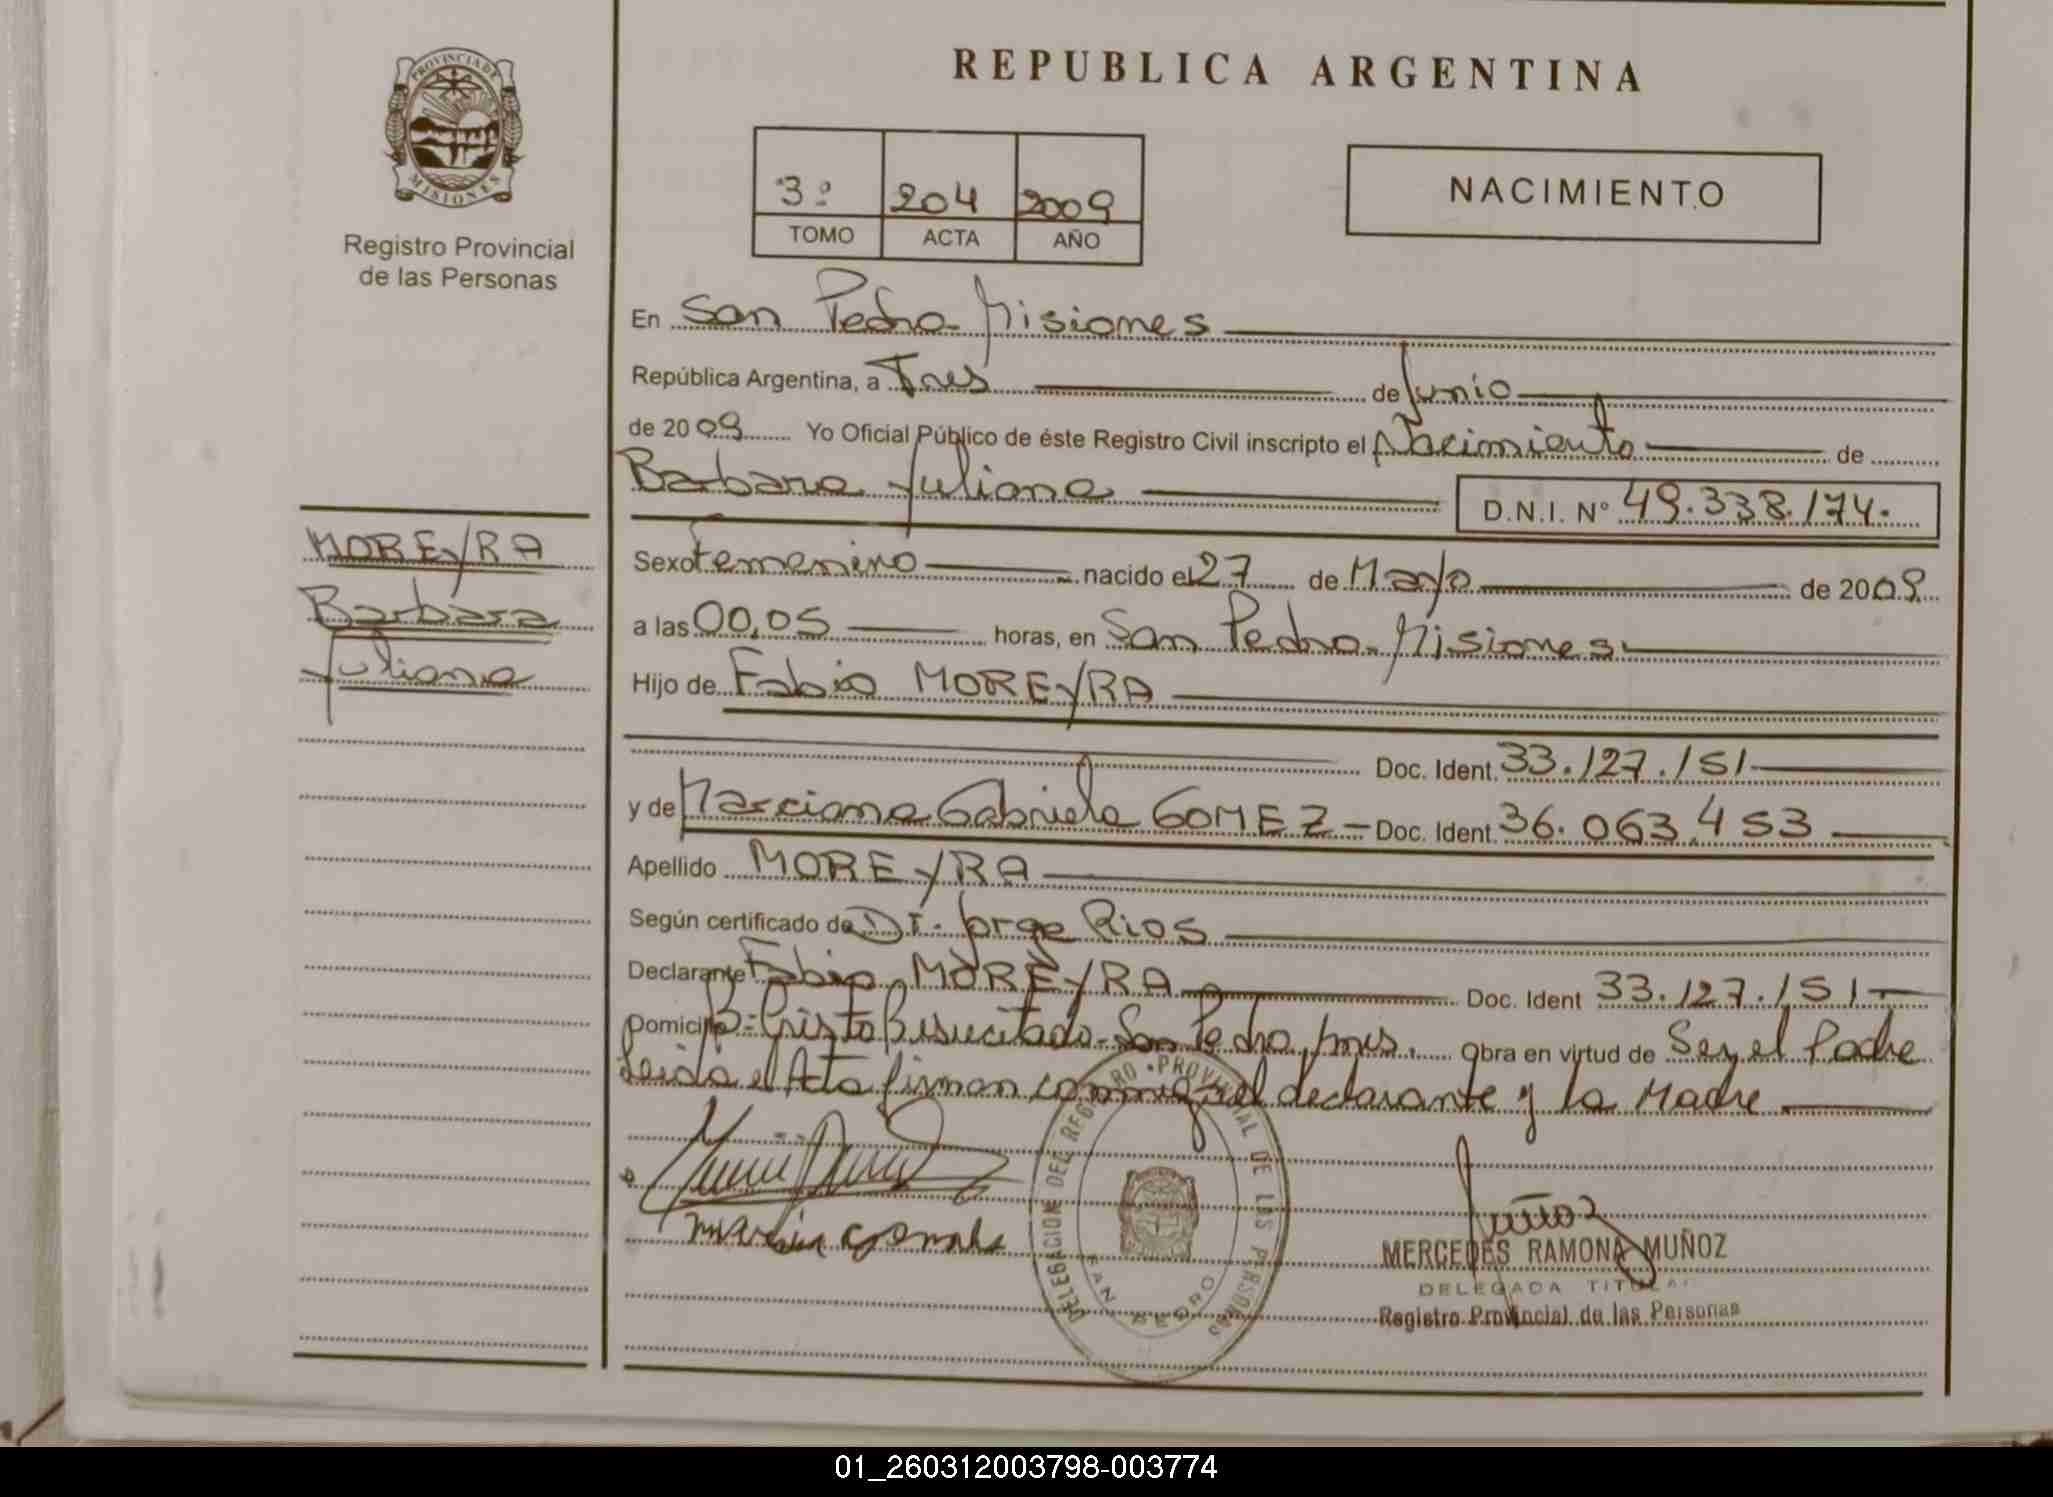 PROVINCIA DE
MISIONES
Registro Provincial
de las Personas
REPUBLICA ARGENTINA
3º 204 2009
TOMO ACTA AÑO
NACIMIENTO
En San Pedro Misiones
República Argentina, a Tres de Junio
de 2009 Yo Oficial Público de éste Registro Civil inscripto el Nacimiento de
Barbara Juliana D.N.I. Nº 49.338.174.
MOREYRA
Barbara
Juliana
Sexo Femenino nacido el 27 de Mayo de 2009
a las 00,05 horas, en San Pedro Misiones
Hijo de Fabio MOREYRA
Doc. Ident. 33.127.151
y de Marciana Gabriela GOMEZ - Doc. Ident. 36.063.453
Apellido MOREYRA
Según certificado de Dr. Jorge Rios
Declarante Fabio MOREYRA Doc. Ident 33.127.151
Domicilio B: Cristo Resucitado San Pedro, Mnes. Obra en virtud de Ser el Padre
Leida el Acta firman conmigo el declarante y la Madre
DELEGACION DEL REGISTRO PROVINCIAL DE LAS PERSONAS
SAN PEDRO
MERCEDES RAMONA MUÑOZ
DELEGADA TITULAR
Registro Provincial de las Personas
01_260312003798-003774